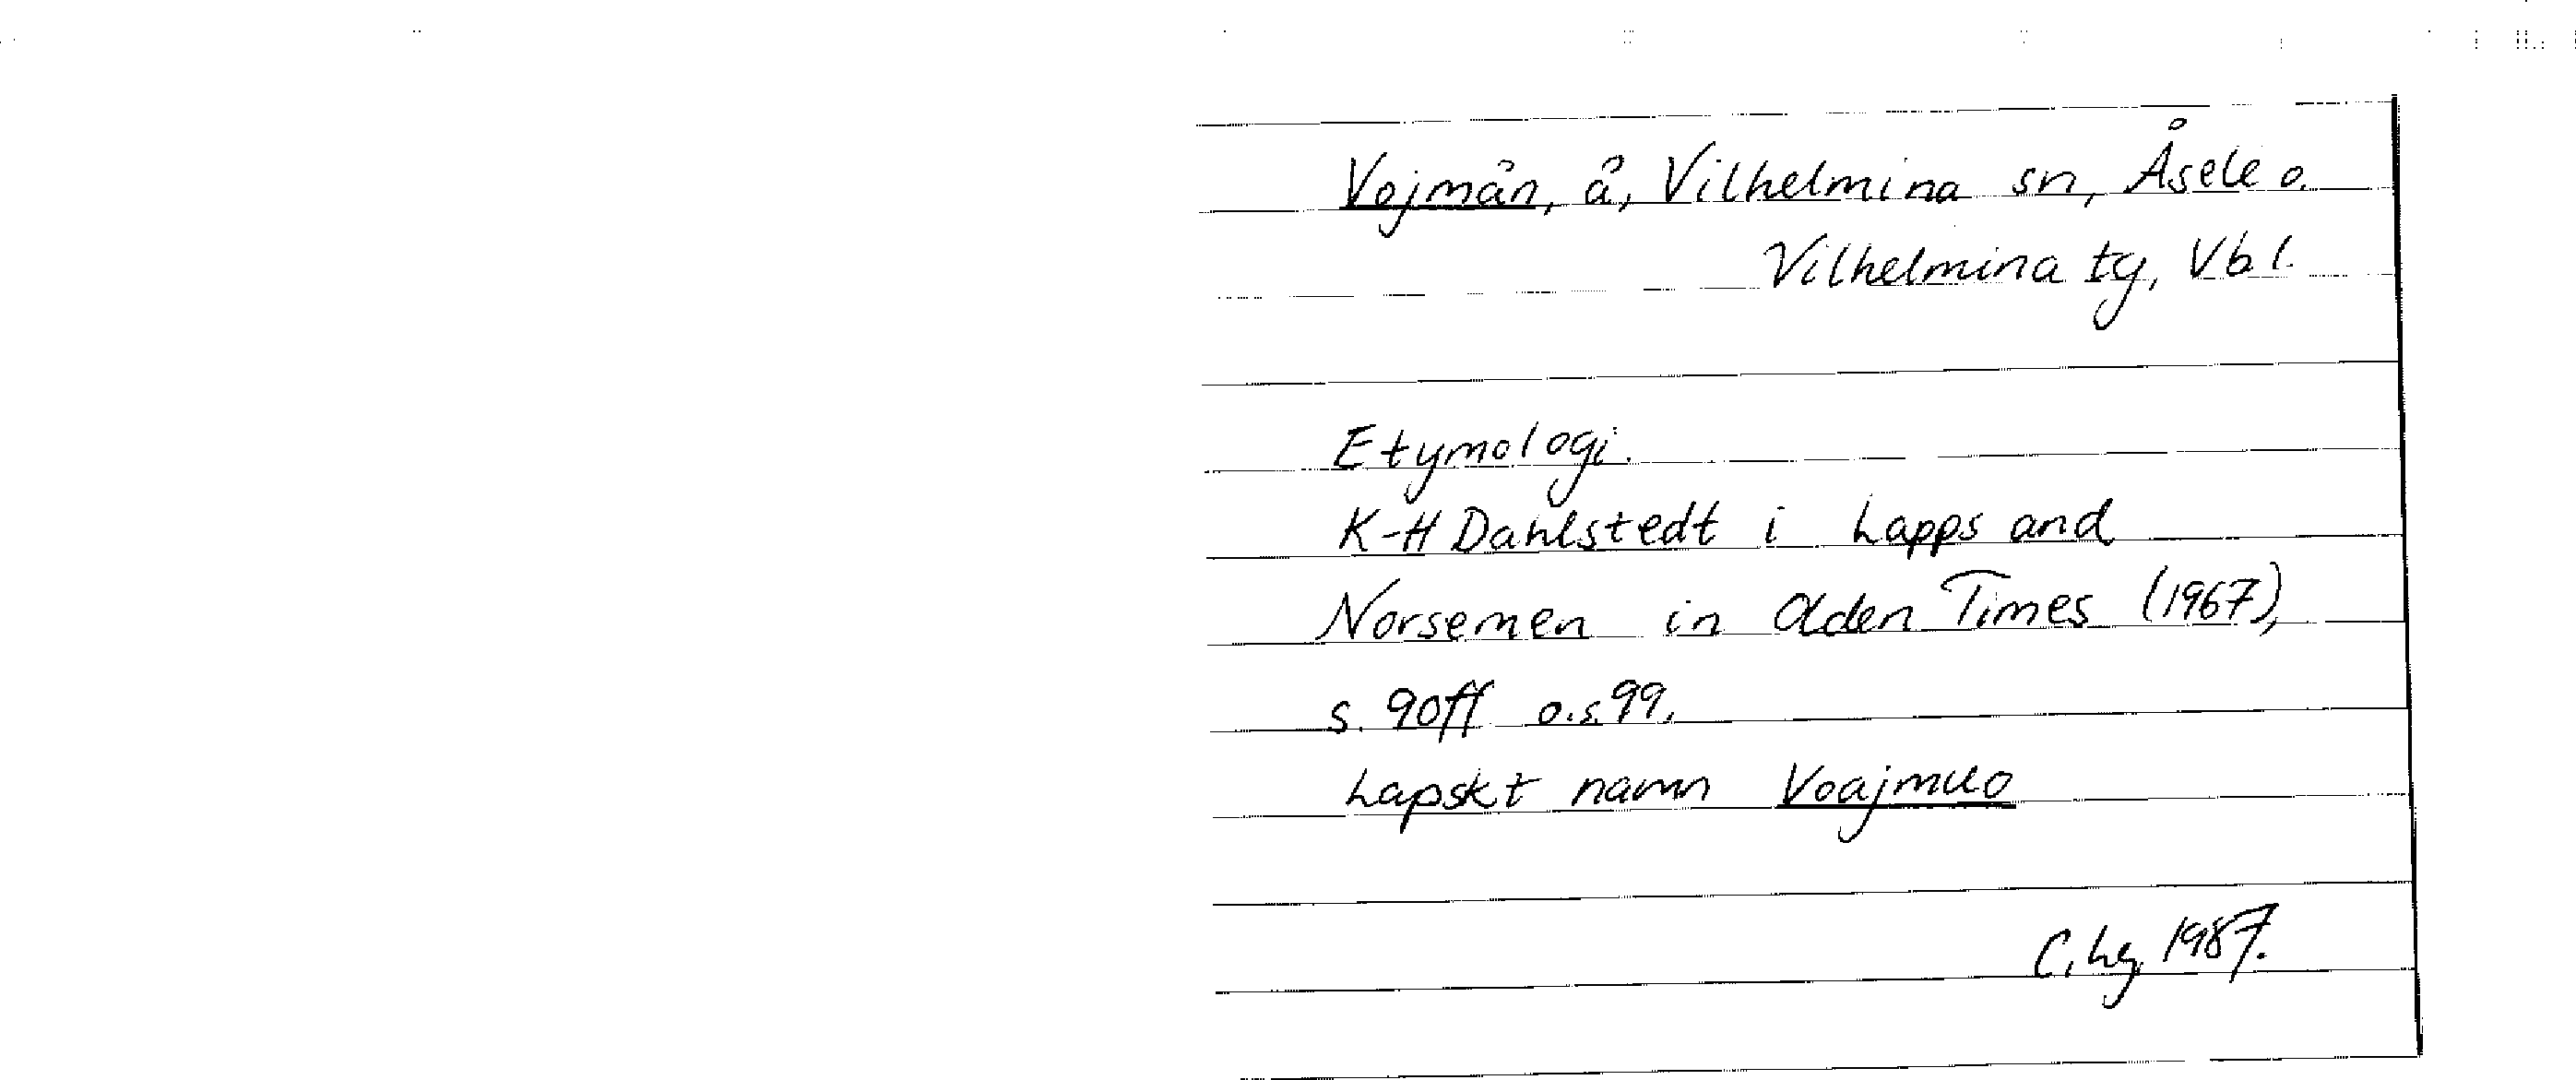 Vojmån, å, Vilhelmina sn, Åsele o.
Vilhelmina tg, Vbl.
Etymologi.
K-H Dahlstedt i Lapps and
Norsemen in Olden Times (1967),
s. 90ff o.s. 99.
Lapskt namn Voajmuo
C. Lg. 1987.